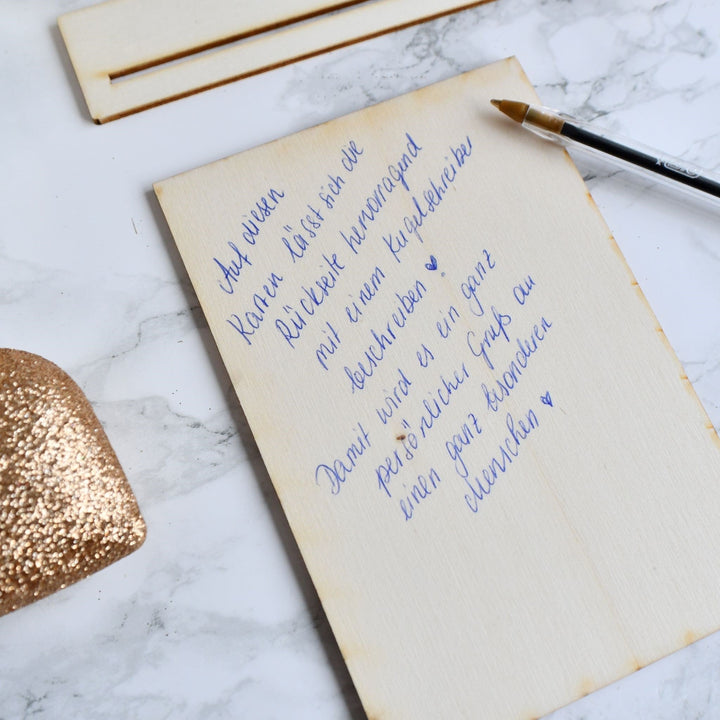 Auf diesen
Karten lässt sich die
Rückseite hervorragend
mit einem Kugelschreiber
beschreiben ♥.
Damit wird es ein ganz
persönlicher Gruß an
einen ganz besonderen
Menschen ♥